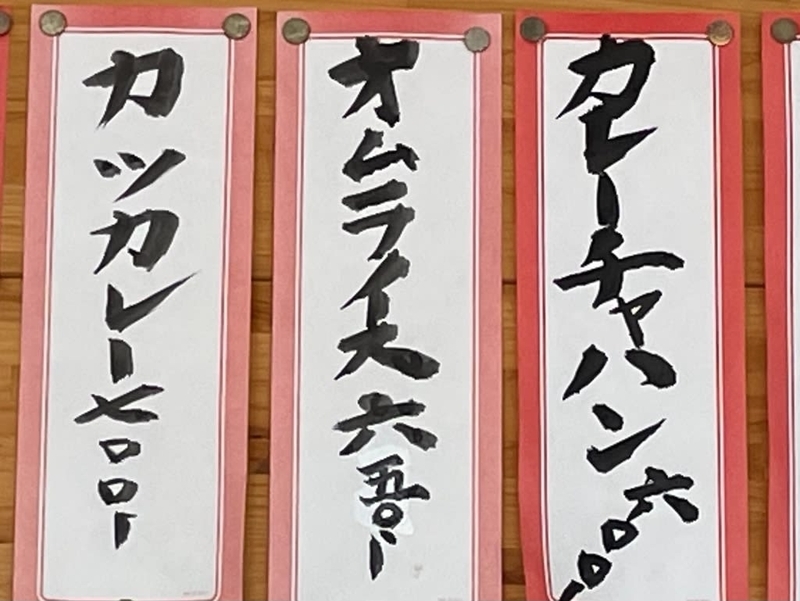 カレーチャハン六〇〇
オムライス六五〇ー
カツカレー七〇〇ー